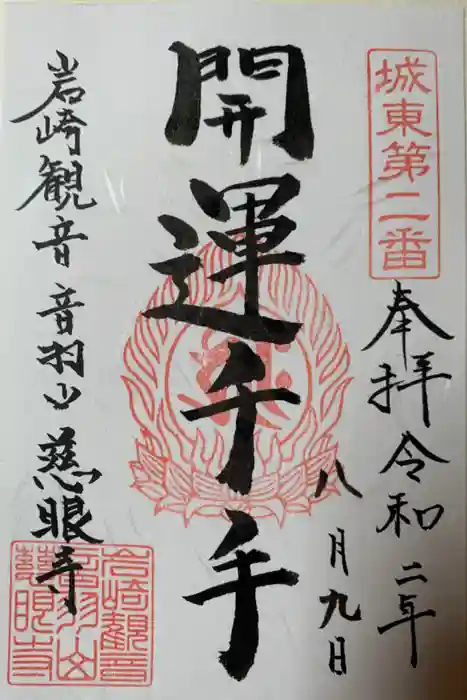 城東第二番
奉拝 令和二年
八月九日
開運千手
岩崎観音 音羽山 慈眼寺
岩崎観音
音羽山
慈眼寺